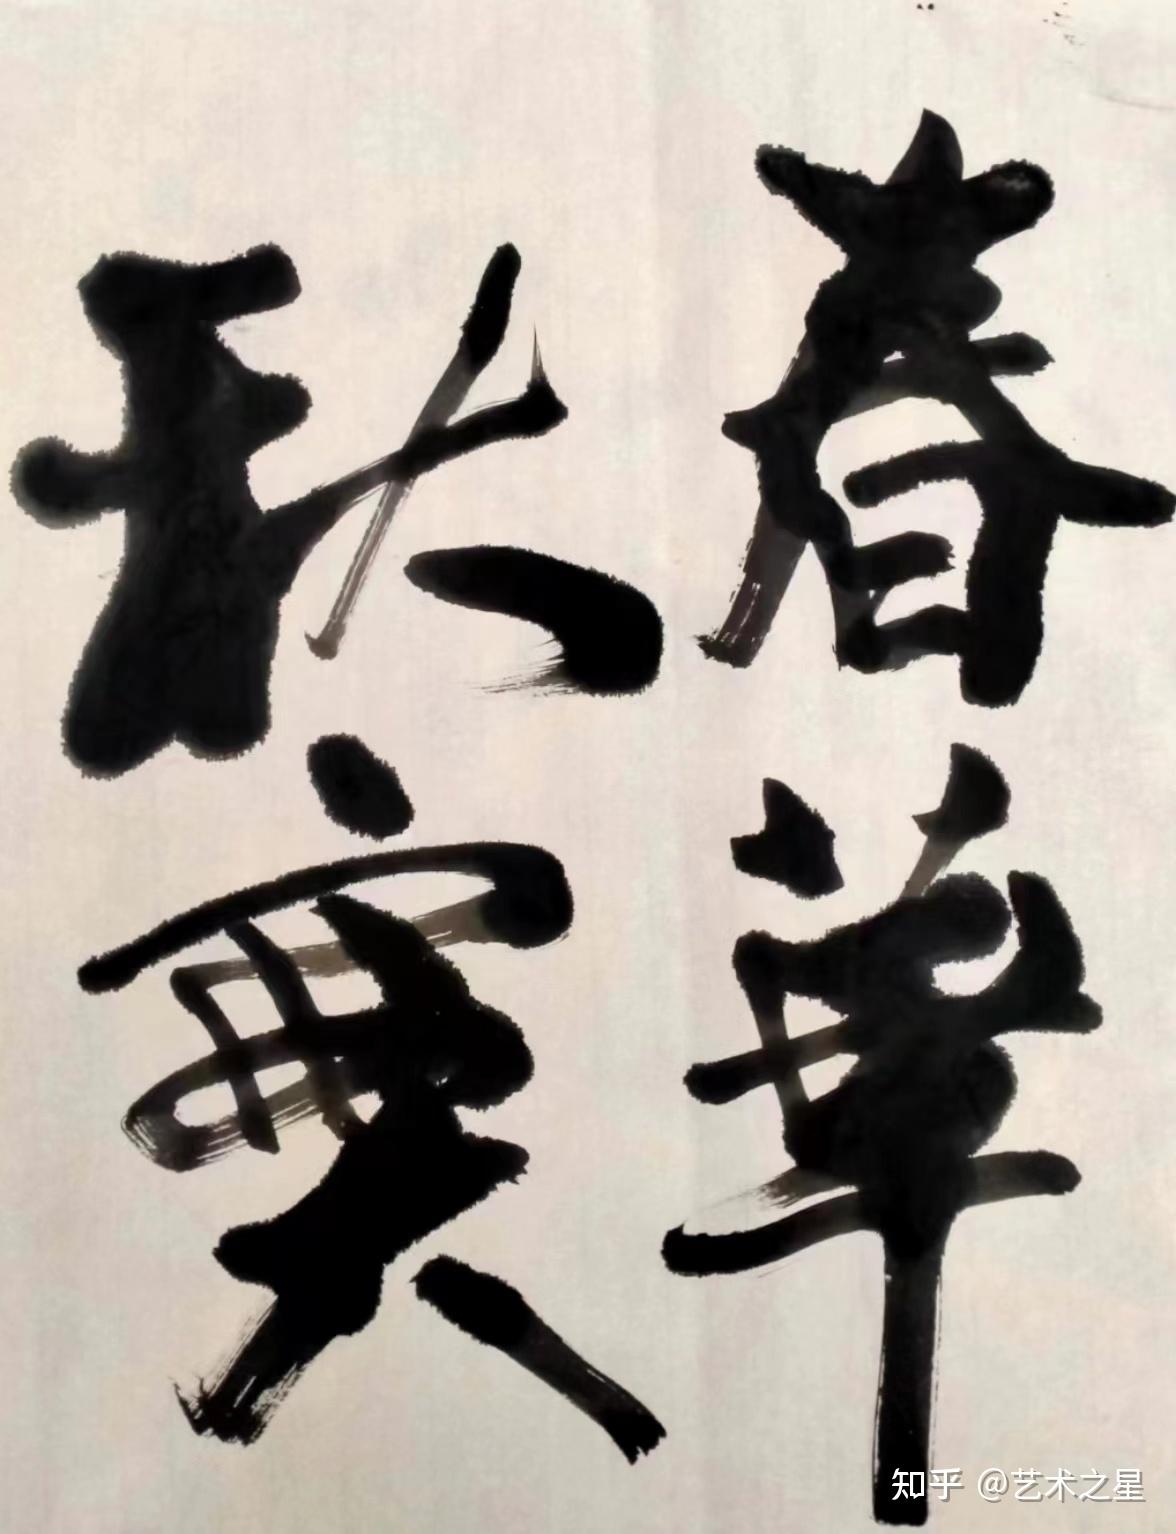 春華
秋實
知乎 @艺术之星